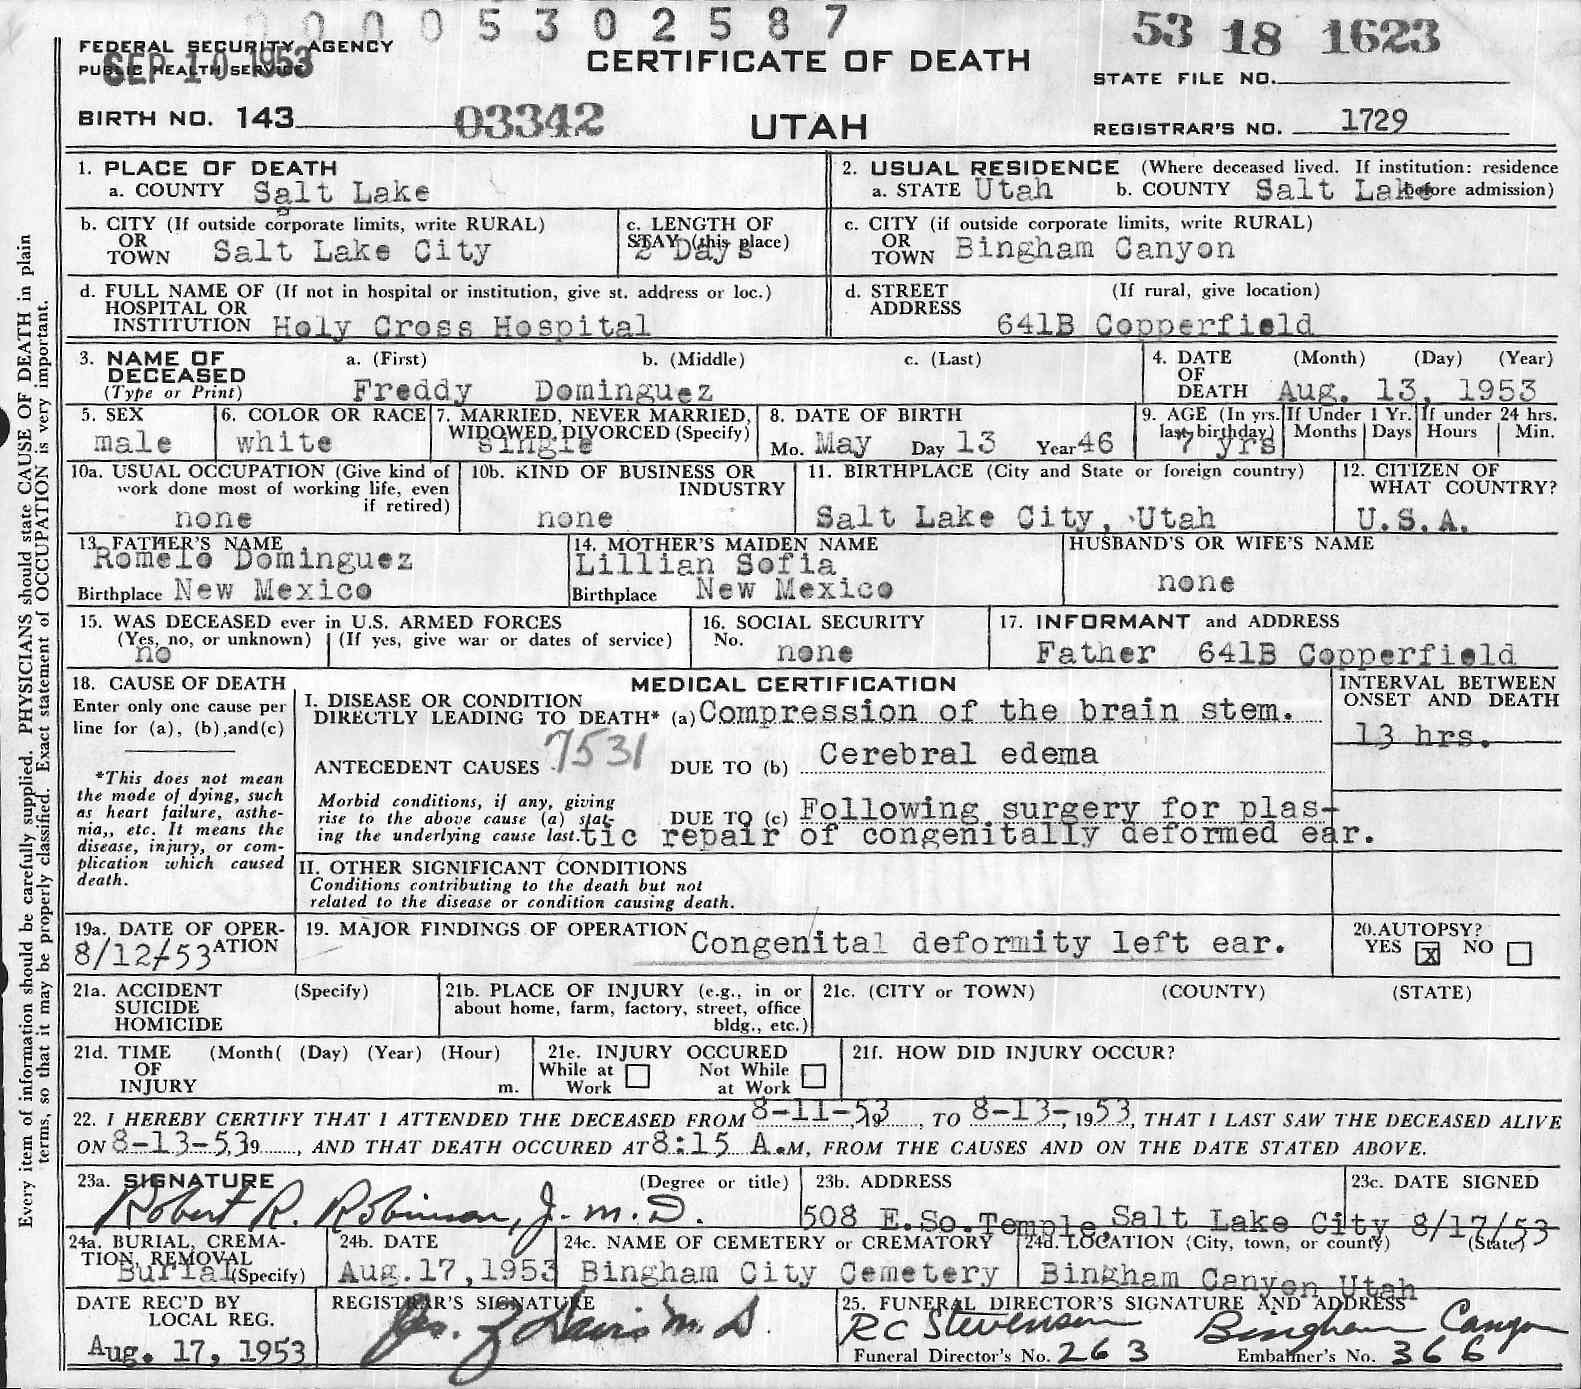 0 0 0 0 5 3 0 2 5 8 7
53 18 1623
FEDERAL SECURITY AGENCY
PUBLIC HEALTH SERVICE
SEP 10 1953
CERTIFICATE OF DEATH
STATE FILE NO.
BIRTH NO. 143
03342
UTAH
REGISTRAR'S NO. 1729
1. PLACE OF DEATH
a. COUNTY Salt Lake
2. USUAL RESIDENCE (Where deceased lived. If institution: residence before admission)
a. STATE Utah b. COUNTY Salt Lake
b. CITY (If outside corporate limits, write RURAL)
OR TOWN Salt Lake City
c. LENGTH OF STAY (this place)
2 Days
c. CITY (if outside corporate limits, write RURAL)
OR TOWN Bingham Canyon
d. FULL NAME OF (If not in hospital or institution, give st. address or loc.)
HOSPITAL OR
INSTITUTION Holy Cross Hospital
d. STREET ADDRESS (If rural, give location)
641B Copperfield
3. NAME OF DECEASED (Type or Print)
a. (First) b. (Middle) c. (Last)
Freddy Dominguez
4. DATE OF DEATH (Month) (Day) (Year)
Aug. 13, 1953
5. SEX
male
6. COLOR OR RACE
white
7. MARRIED, NEVER MARRIED, WIDOWED, DIVORCED (Specify)
single
8. DATE OF BIRTH
Mo. May Day 13 Year 46
9. AGE (In yrs. last birthday)
7 yrs
If Under 1 Yr. Months Days
If under 24 hrs. Hours Min.
10a. USUAL OCCUPATION (Give kind of work done most of working life, even if retired)
none
10b. KIND OF BUSINESS OR INDUSTRY
none
11. BIRTHPLACE (City and State or foreign country)
Salt Lake City, Utah
12. CITIZEN OF WHAT COUNTRY?
U.S.A.
13. FATHER'S NAME
Romelo Dominguez
Birthplace New Mexico
14. MOTHER'S MAIDEN NAME
Lillian Sofia
Birthplace New Mexico
HUSBAND'S OR WIFE'S NAME
none
15. WAS DECEASED ever in U.S. ARMED FORCES
(Yes, no, or unknown) (If yes, give war or dates of service)
no
16. SOCIAL SECURITY No.
none
17. INFORMANT and ADDRESS
Father 641B Copperfield
18. CAUSE OF DEATH
Enter only one cause per line for (a), (b),and(c)
*This does not mean the mode of dying, such as heart failure, asthenia,, etc. It means the disease, injury, or complication which caused death.
MEDICAL CERTIFICATION
INTERVAL BETWEEN ONSET AND DEATH
I. DISEASE OR CONDITION
DIRECTLY LEADING TO DEATH* (a) Compression of the brain stem.
13 hrs.
7531
ANTECEDENT CAUSES DUE TO (b) Cerebral edema
Morbid conditions, if any, giving rise to the above cause (a) stating the underlying cause last.
DUE TO (c) Following surgery for plas-
tic repair of congenitally deformed ear.
II. OTHER SIGNIFICANT CONDITIONS
Conditions contributing to the death but not
related to the disease or condition causing death.
19a. DATE OF OPERATION
8/12/53
19. MAJOR FINDINGS OF OPERATION Congenital deformity left ear.
20. AUTOPSY?
YES x NO
21a. ACCIDENT SUICIDE HOMICIDE (Specify)
21b. PLACE OF INJURY (e.g., in or about home, farm, factory, street, office bldg., etc.)
21c. (CITY or TOWN) (COUNTY) (STATE)
21d. TIME OF INJURY (Month( (Day) (Year) (Hour) m.
21e. INJURY OCCURED
While at Work Not While at Work
21f. HOW DID INJURY OCCUR?
22. I HEREBY CERTIFY THAT I ATTENDED THE DECEASED FROM 8-11-53, 19, TO 8-13-, 1953, THAT I LAST SAW THE DECEASED ALIVE
ON 8-13-53, 19, AND THAT DEATH OCCURED AT 8:15 A.M, FROM THE CAUSES AND ON THE DATE STATED ABOVE.
23a. SIGNATURE (Degree or title)
Robert R. Robinson, J. M.D.
23b. ADDRESS
508 E.So.Temple, Salt Lake City
23c. DATE SIGNED
8/17/53
24a. BURIAL, CREMATION, REMOVAL (Specify)
Burial
24b. DATE
Aug.17,1953
24c. NAME OF CEMETERY or CREMATORY
Bingham City Cemetery
24d. LOCATION (City, town, or county) (State)
Bingham Canyon Utah
DATE REC'D BY LOCAL REG.
Aug. 17, 1953
REGISTRAR'S SIGNATURE
Davis M. D.
25. FUNERAL DIRECTOR'S SIGNATURE AND ADDRESS
R C Stevenson Bingham Canyon
Funeral Director's No. 263 Embalmer's No. 366
Every item of information should be carefully supplied. PHYSICIANS should state CAUSE OF DEATH in plain
terms, so that it may be properly classified. Exact statement of OCCUPATION is very important.